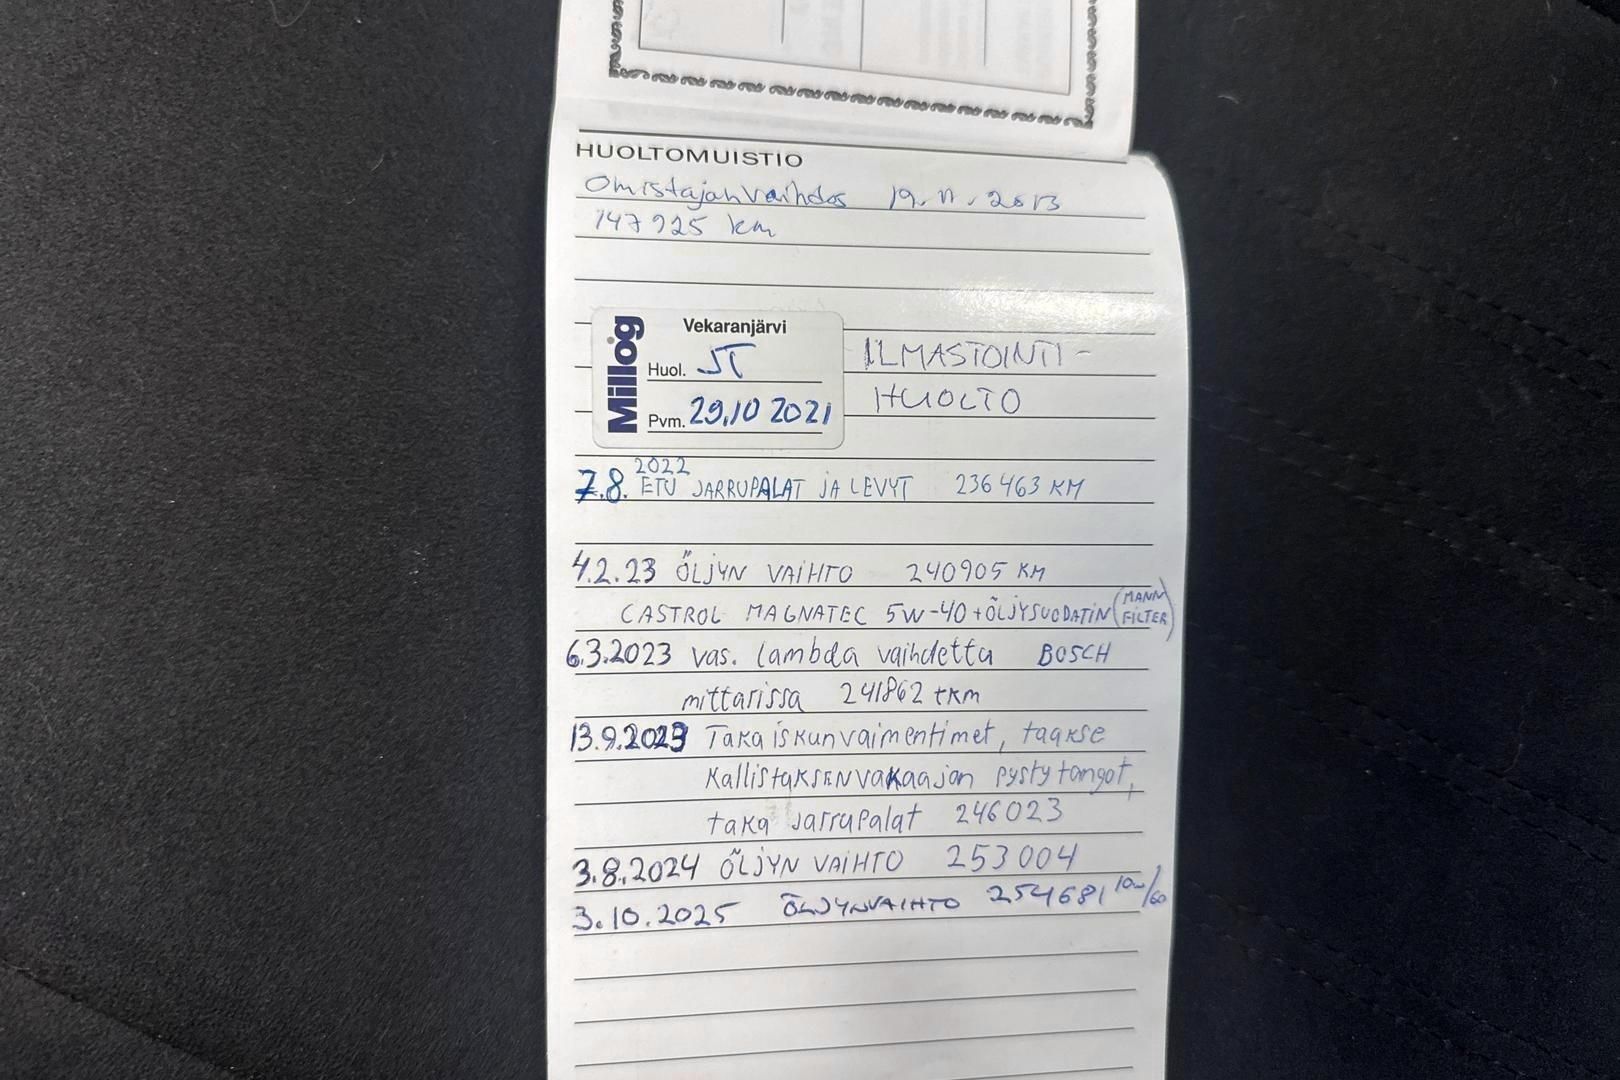 HUOLTOMUISTIO
Omistajanvaihdos 19.11.2013
147925 km
Millog
Vekaranjärvi
Huol. JT
Pvm. 29.10 2021
ILMASTOINTI-
HUOLTO
2022
7.8. ETU JARRUPALAT JA LEVYT 236463 KM
4.2.23 ÖLJYN VAIHTO 240905 KM
CASTROL MAGNATEC 5W-40 + ÖLJYSUODATIN (MANN FILTER)
6.3.2023 vas. lambda vaihdettu BOSCH
mittarissa 241862 tkm
13.9.2023 Taka iskunvaimentimet, taakse
Kallistuksenvakaajan pystytangot,
taka jarrupalat 246023
3.8.2024 ÖLJYN VAIHTO 253004
3.10.2025 ÖLJYNVAIHTO 254681 10w/60